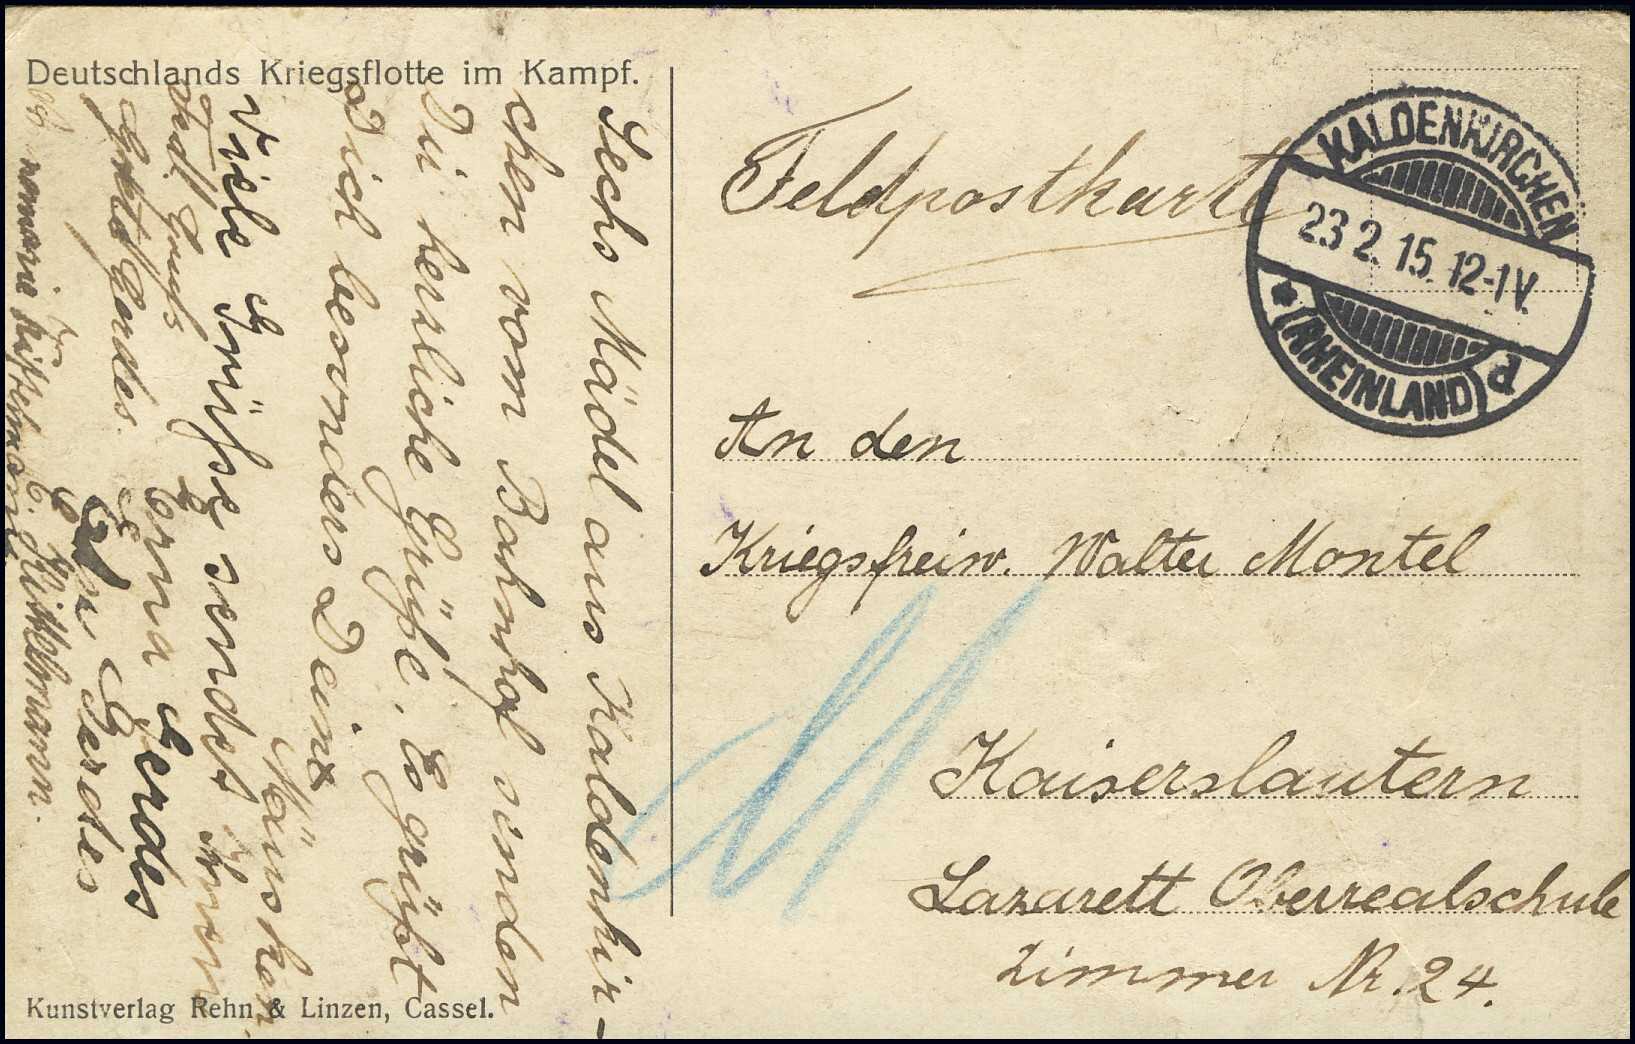 Deutschlands Kriegsflotte im Kampf.
Feldpostkarte
KALDENKIRCHEN
23 2. 15. 12-1 V.
* (RHEINLAND) d
An den
Kriegsfreiw. Walter Montel
Kaiserslautern
Lazarett Oberrealschule
Zimmer Nr. 24.
Sechs Mädel aus Kaldenkir-
chen vom Bahnhof sinden
Dir herzliche Grüße. Es grüßt
Dich besonders Deine
Mäuschen
Viele Grüße sendet Ihnen
Erna Gerdes
Gruß
Gerdes.
Gerdes
Hüttelmann.
Kunstverlag Rehn & Linzen, Cassel.